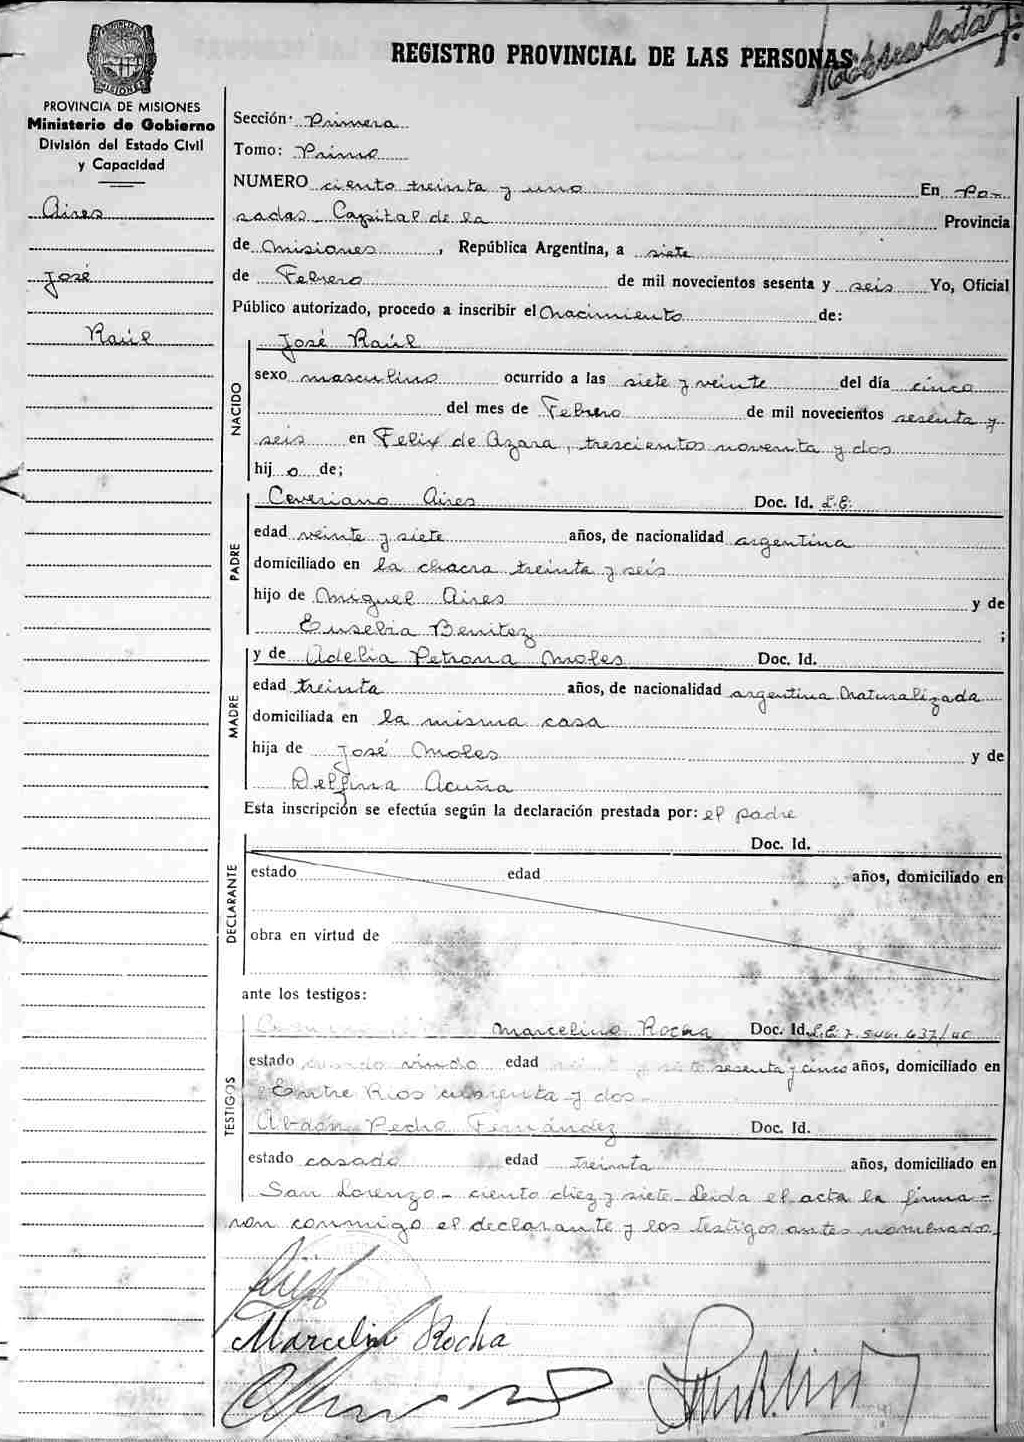 REGISTRO PROVINCIAL DE LAS PERSONAS
PROVINCIA DE MISIONES
Ministerio de Gobierno
División del Estado Civil
y Capacidad
Aires
José
Raúl
Sección: Primera
Tomo: Primo
NUMERO ciento treinta y uno En Po-
sadas Capital de la Provincia
de Misiones, República Argentina, a siete
de Febrero de mil novecientos sesenta y seis Yo, Oficial
Público autorizado, procedo a inscribir el Nacimiento de:
NACIDO
José Raúl
sexo masculino ocurrido a las siete y veinte del día cinco
del mes de Febrero de mil novecientos sesenta y
seis en Felix de Azara, trescientos noventa y dos
hijo de;
PADRE
Ceveriano Aires Doc. Id. L.E.
edad veinte y siete años, de nacionalidad argentina
domiciliado en la chacra treinta y seis
hijo de Miguel Aires y de
Eusebia Benitez ;
MADRE
y de Adelia Petrona Moles Doc. Id.
edad treinta años, de nacionalidad argentina naturalizada
domiciliada en la misma casa
hija de José Moles y de
Delfina Acuña
Esta inscripción se efectúa según la declaración prestada por: el padre
DECLARANTE
Doc. Id.
estado edad años, domiciliado en
obra en virtud de
ante los testigos:
TESTIGOS
Marcelino Rocha Doc. Id. L.E. 7.546.637/40
estado viudo edad sesenta y cinco años, domiciliado en
Entre Rios y dos
Abdón Pedro Fernández Doc. Id.
estado casado edad treinta años, domiciliado en
San Lorenzo - ciento diez y siete - Leida el acta la firma-
ron conmigo el declarante y los testigos antes nombrados
Marcelin Rocha